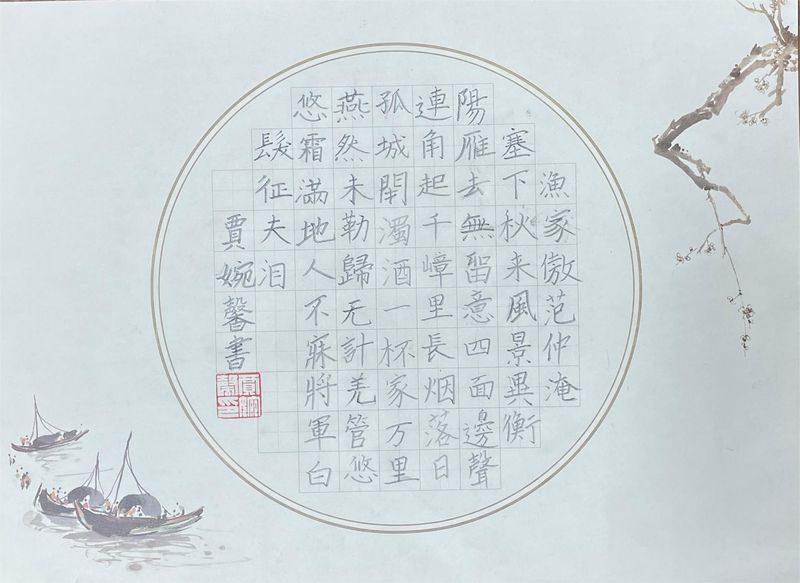 漁家傲范仲淹
塞下秋来風景異衡
陽雁去無留意四面邊聲
連角起千嶂里長烟落日
孤城閉濁酒一杯家万里
燕然未勒歸无計羌管悠
悠霜滿地人不寐將軍白
髮征夫泪
賈婉馨書